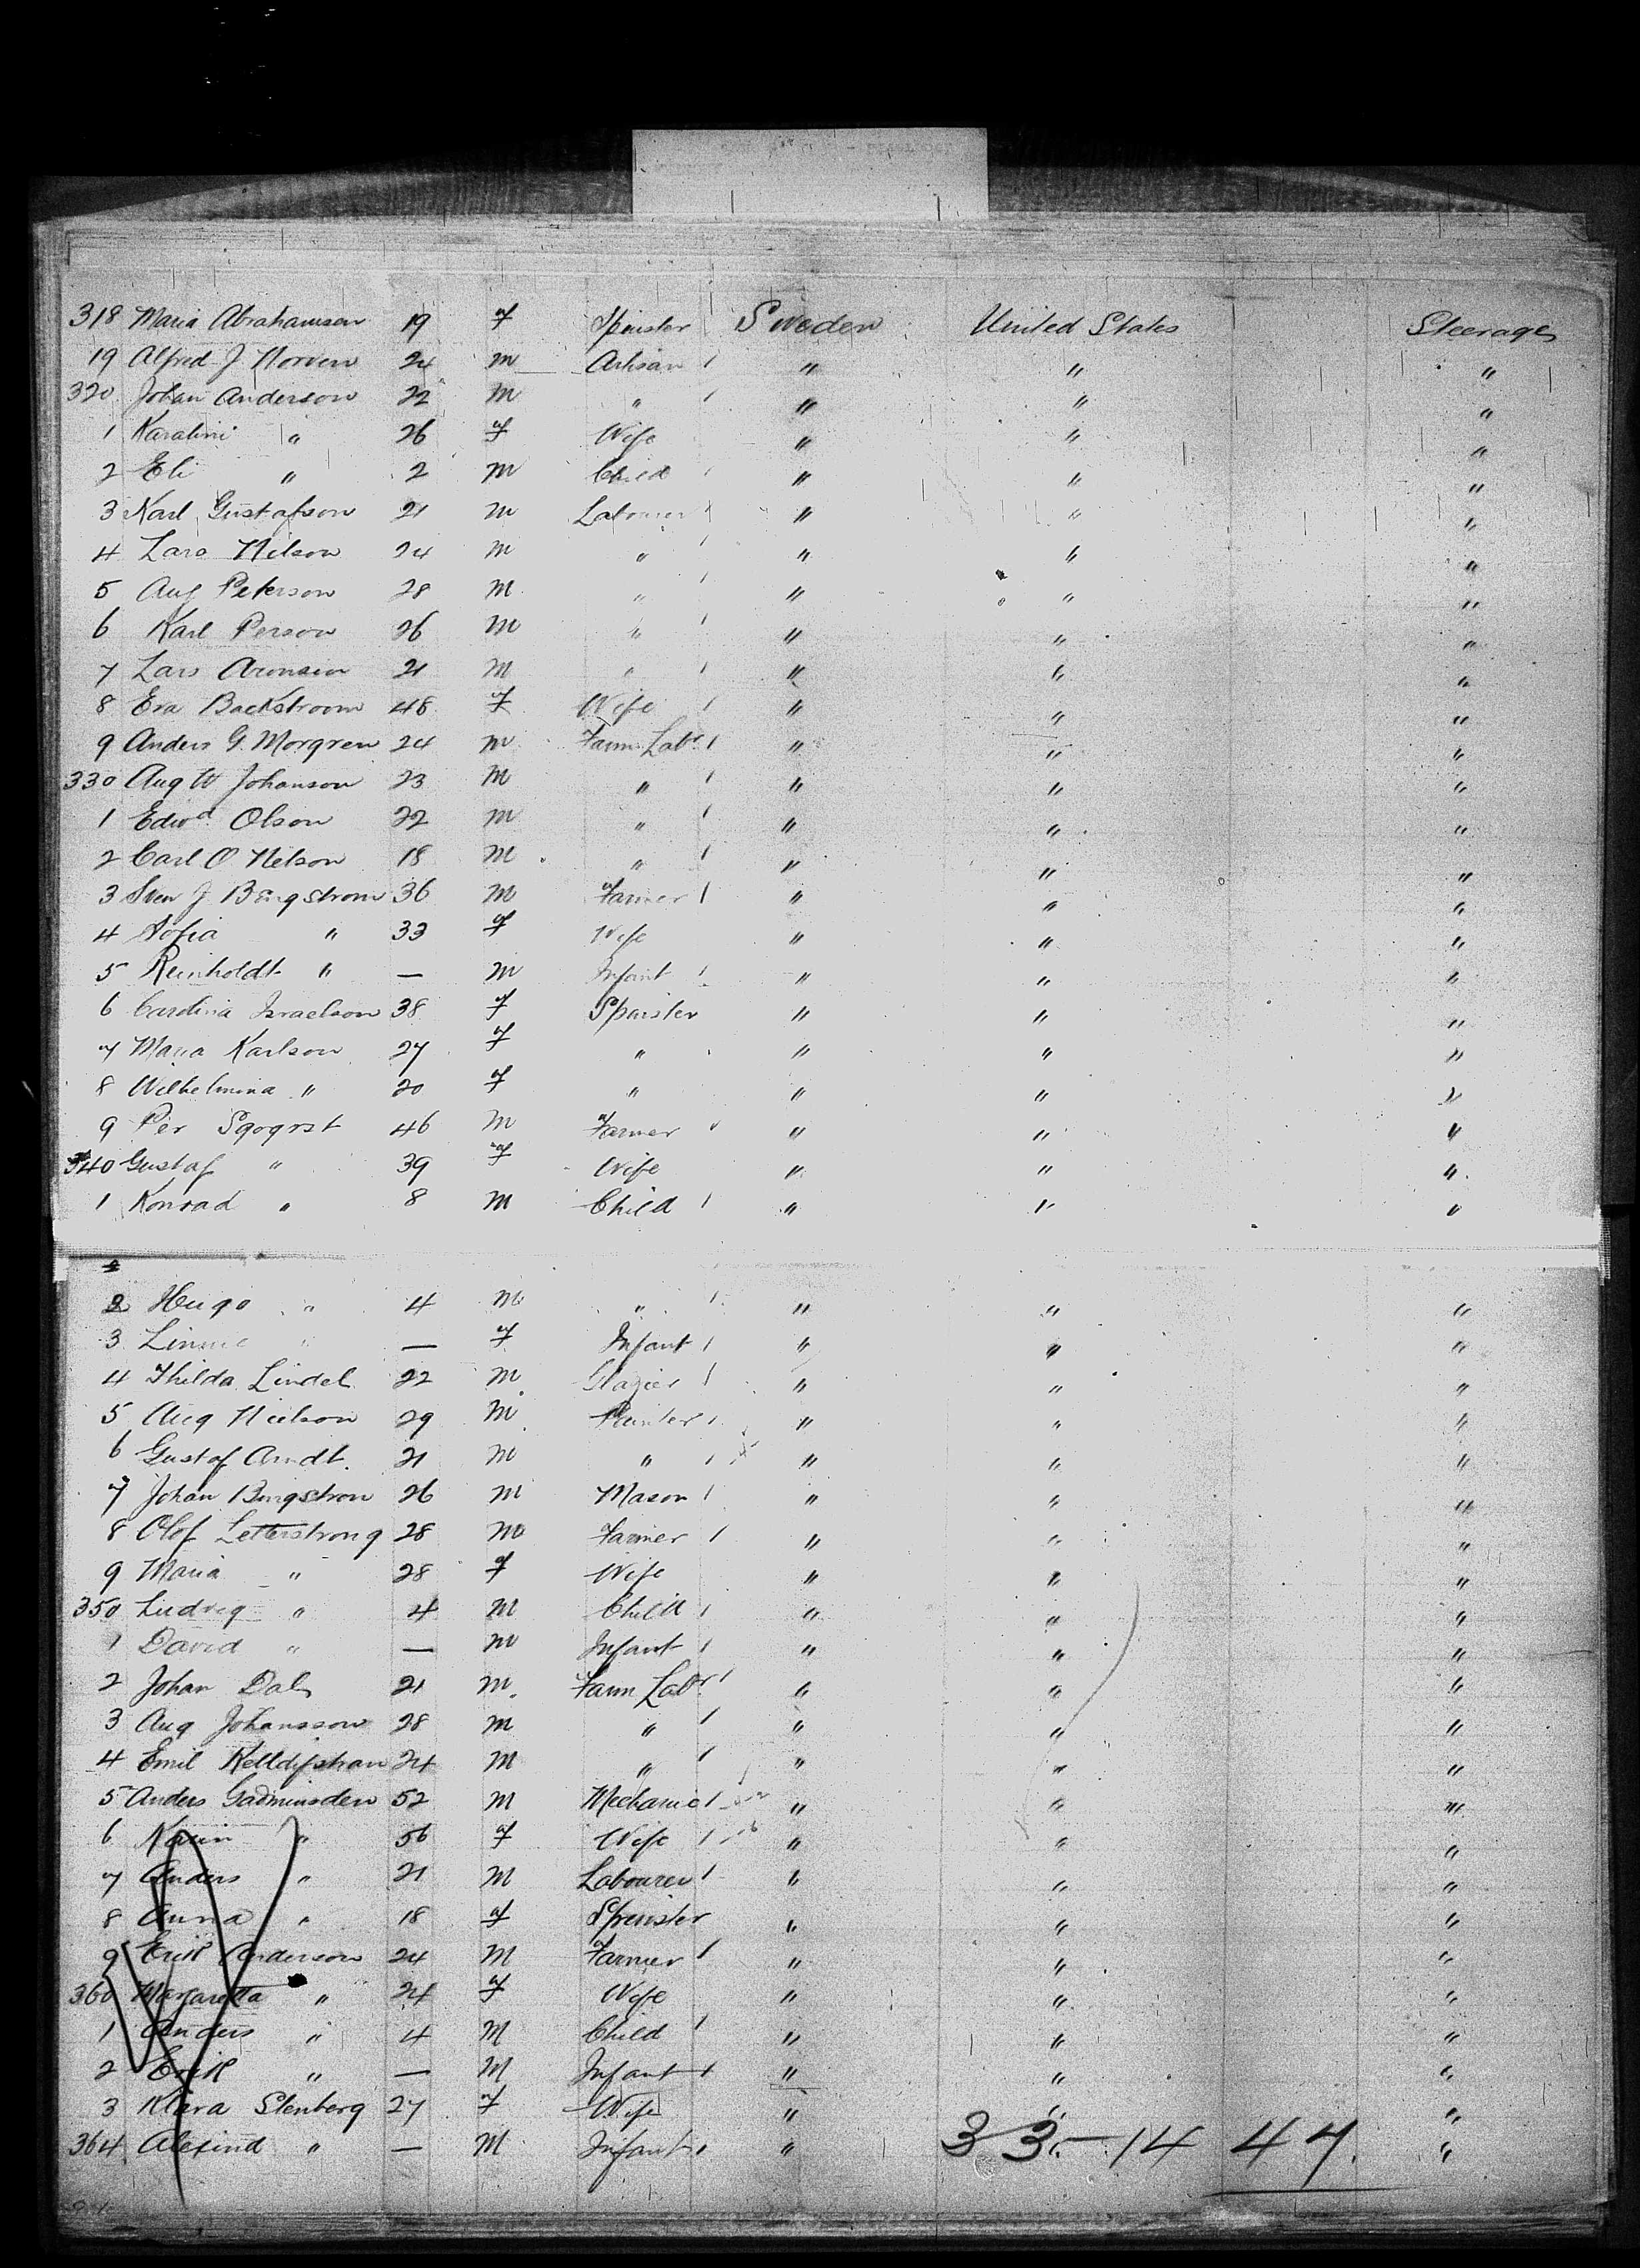 318 Maria Abrahamson 19 f Spinster Sweden United States Steerage
19 Alfred J. Norven 24 m Artisan " " "
320 Johan Anderson 22 m " " " "
1 Karalini " 26 f Wife " " "
2 Eli " 2 m Child " " "
3 Karl Gustafson 21 m Labourer " " "
4 Lars Nilson 24 m " " " "
5 Aug Peterson 28 m " " " "
6 Karl Person 26 m " " " "
7 Lars Aronson 21 m " " " "
8 Eva Backstroom 48 f Wife " " "
9 Anders G. Morgren 24 m Farm Labr " " "
330 Aug W Johanson 23 m " " " "
1 Edwd Olson 22 m " " " "
2 Carl O Nelson 18 m " " " "
3 Sven J Bengstrom 36 m Farmer " " "
4 Sofia " 33 f Wife " " "
5 Reinholdt " — m Infant " " "
6 Carolina Israelson 38 f Spinster " " "
7 Maria Karlson 27 f " " " "
8 Wilhelmina " 20 f " " " "
9 Per Sgogrst 46 m Farmer " " "
340 Gustaf " 39 f Wife " " "
1 Konrad " 8 m Child " " "
2 Hugo " 4 m " " " "
3 " — f Infant " " "
4 Thilda Lindel 22 m Glazier " " "
5 Aug Nielson 29 m " " "
6 Gustaf Arndt. 21 m " " " "
7 Johan Bengstron 26 m Mason " " "
8 Olof Letterstrong 28 m Farmer " " "
9 Maria " 28 f Wife " " "
350 Ludvig " 4 m Child " " "
1 David " — m Infant " " "
2 Johan Dal 21 m Farm Labr " " "
3 Aug Johansson 28 m " " " "
4 Emil 24 m " " " "
5 Anders Gadminsden 52 m Mechanic " " "
6 Karin " 56 f Wife " " "
7 Anders " 21 m Labourer " " "
8 Anna " 18 f Spinster " " "
9 Erik Anderson 24 m Farmer " " "
360 Margaretta " 24 f Wife " " "
1 Anders " 4 m Child " " "
2 Erik " — m Infant " " "
3 Klara Stenberg 27 f Wife " " "
364 Alexind " — m Infant " "
33 — 14 47.